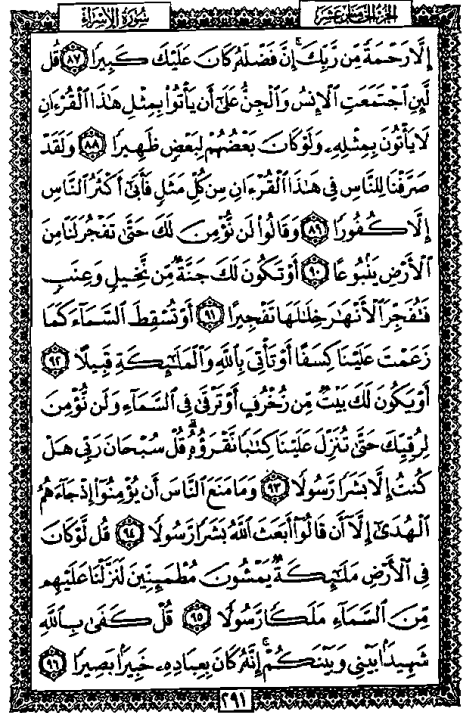 الجزء الخامس عشر
سورة الإسراء
إِلَّا رَحْمَةً مِّن رَّبِّكَ إِنَّ فَضْلَهُۥ كَانَ عَلَيْكَ كَبِيرًا ٨٧ قُل
لَّئِنِ ٱجْتَمَعَتِ ٱلْإِنسُ وَٱلْجِنُّ عَلَىٰٓ أَن يَأْتُوا۟ بِمِثْلِ هَٰذَا ٱلْقُرْءَانِ
لَا يَأْتُونَ بِمِثْلِهِۦ وَلَوْ كَانَ بَعْضُهُمْ لِبَعْضٍ ظَهِيرًا ٨٨ وَلَقَدْ
صَرَّفْنَا لِلنَّاسِ فِى هَٰذَا ٱلْقُرْءَانِ مِن كُلِّ مَثَلٍ فَأَبَىٰٓ أَكْثَرُ ٱلنَّاسِ
إِلَّا كُفُورًا ٨٩ وَقَالُوا۟ لَن نُّؤْمِنَ لَكَ حَتَّىٰ تَفْجُرَ لَنَا مِنَ
ٱلْأَرْضِ يَنۢبُوعًا ٩٠ أَوْ تَكُونَ لَكَ جَنَّةٌ مِّن نَّخِيلٍ وَعِنَبٍ
فَتُفَجِّرَ ٱلْأَنْهَٰرَ خِلَٰلَهَا تَفْجِيرًا ٩١ أَوْ تُسْقِطَ ٱلسَّمَآءَ كَمَا
زَعَمْتَ عَلَيْنَا كِسَفًا أَوْ تَأْتِىَ بِٱللَّهِ وَٱلْمَلَٰٓئِكَةِ قَبِيلًا ٩٢
أَوْ يَكُونَ لَكَ بَيْتٌ مِّن زُخْرُفٍ أَوْ تَرْقَىٰ فِى ٱلسَّمَآءِ وَلَن نُّؤْمِنَ
لِرُقِيِّكَ حَتَّىٰ تُنَزِّلَ عَلَيْنَا كِتَٰبًا نَّقْرَؤُهُۥ قُلْ سُبْحَانَ رَبِّى هَلْ
كُنتُ إِلَّا بَشَرًا رَّسُولًا ٩٣ وَمَا مَنَعَ ٱلنَّاسَ أَن يُؤْمِنُوٓا۟ إِذْ جَآءَهُمُ
ٱلْهُدَىٰٓ إِلَّآ أَن قَالُوٓا۟ أَبَعَثَ ٱللَّهُ بَشَرًا رَّسُولًا ٩٤ قُل لَّوْ كَانَ
فِى ٱلْأَرْضِ مَلَٰٓئِكَةٌ يَمْشُونَ مُطْمَئِنِّينَ لَنَزَّلْنَا عَلَيْهِم
مِّنَ ٱلسَّمَآءِ مَلَكًا رَّسُولًا ٩٥ قُلْ كَفَىٰ بِٱللَّهِ
شَهِيدًۢا بَيْنِى وَبَيْنَكُمْ إِنَّهُۥ كَانَ بِعِبَادِهِۦ خَبِيرًۢا بَصِيرًا ٩٦
٢٩١